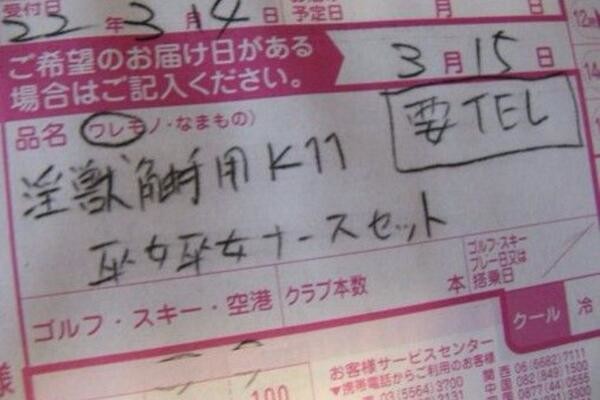 受付日 22年3月14日
予定日
ご希望のお届け日がある
場合はご記入ください。
3月15日
品名 (ワレモノ・なまもの)
要TEL
淫獣触手用K11
巫女巫女ナースセット
ゴルフ・スキー・空港
クラブ本数 本
ゴルフ・スキー
プレー日又は
搭乗日
クール
冷
お客様サービスセンター
▼携帯電話からご利用のお客様
03(5564)3700
関西 06(6682)7111
中国 082(849)1500